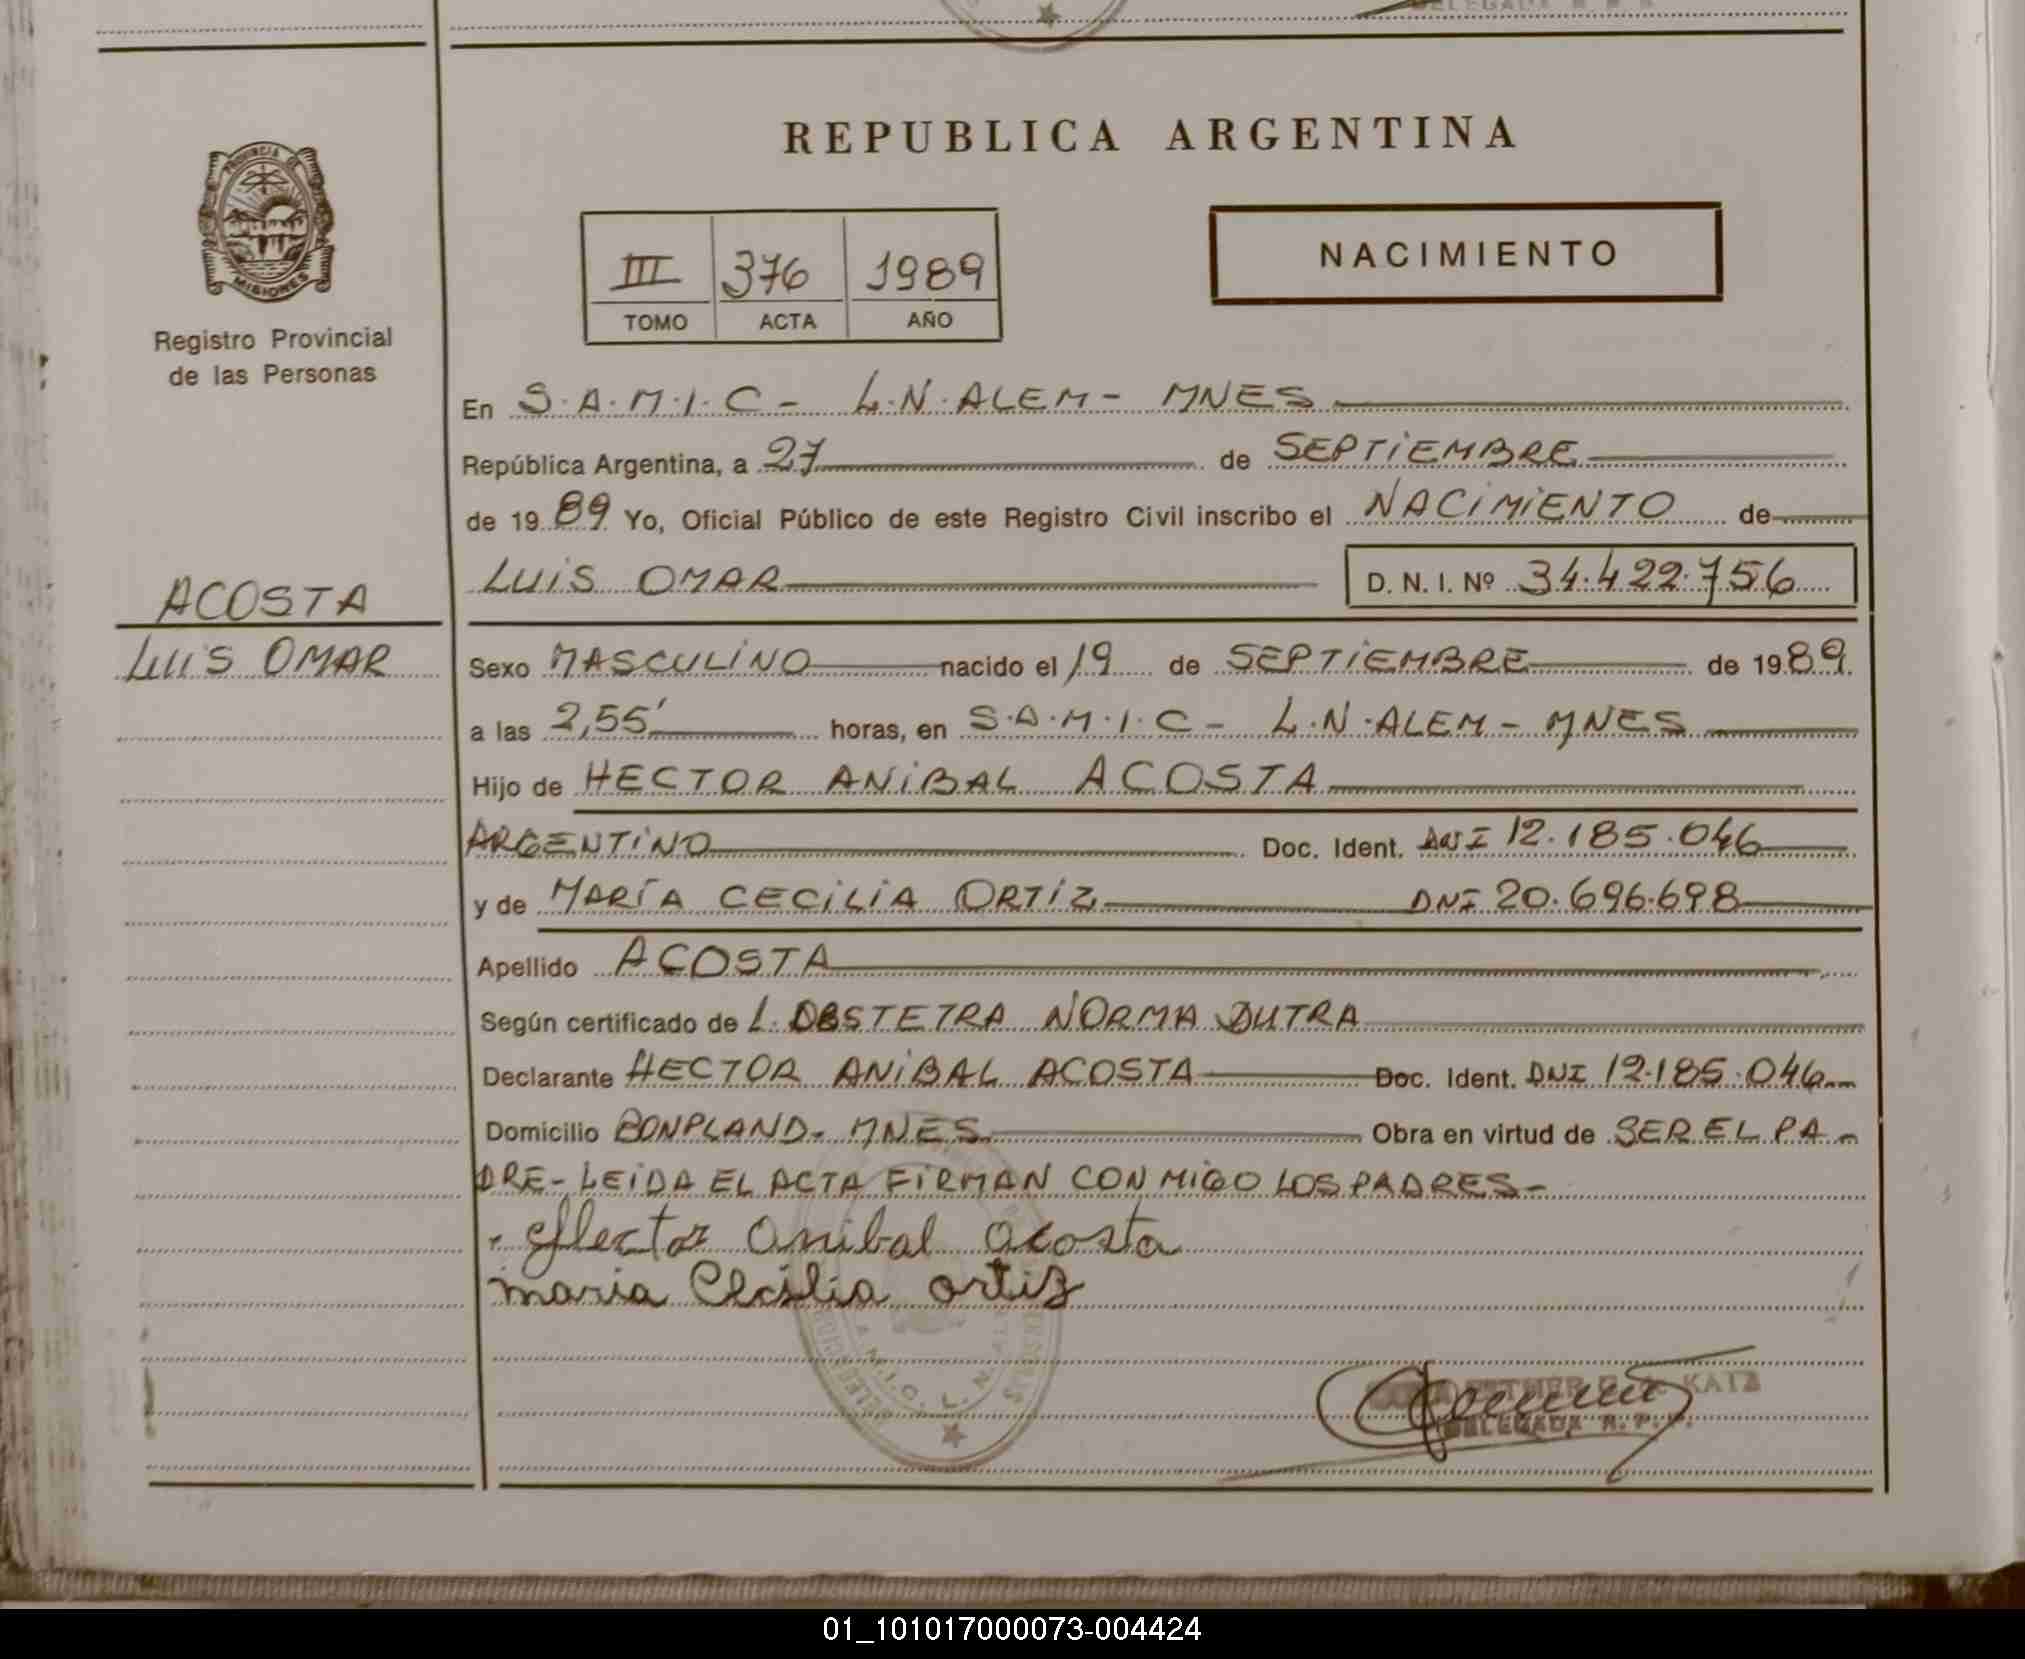 DELEGADA R. P. P.
PROVINCIA DE
MISIONES
Registro Provincial
de las Personas
ACOSTA
LUIS OMAR
REPUBLICA ARGENTINA
III 376 1989
TOMO ACTA AÑO
NACIMIENTO
En S.A.M.I.C - L.N.ALEM - MNES
República Argentina, a 27 de SEPTIEMBRE
de 1989 Yo, Oficial Público de este Registro Civil inscribo el NACIMIENTO de
LUIS OMAR D. N. I. Nº 34.422.756
Sexo MASCULINO nacido el 19 de SEPTIEMBRE de 1989.
a las 2,55' horas, en S.A.M.I.C - L.N.ALEM - MNES
Hijo de HECTOR ANIBAL ACOSTA
ARGENTINO Doc. Ident. DNI 12.185.046
y de MARÍA CECILIA ORTIZ DNI 20.696.698
Apellido ACOSTA
Según certificado de L. OBSTETRA NORMA DUTRA
Declarante HECTOR ANIBAL ACOSTA Doc. Ident. DNI 12.185.046
Domicilio BONPLAND - MNES Obra en virtud de SER EL PA-
DRE - LEIDA EL ACTA FIRMAN CONMIGO LOS PADRES -
Hector Anibal Acosta
maria Cecilia ortiz
ESTHER KATZ
DELEGADA R. P. P.
01_101017000073-004424